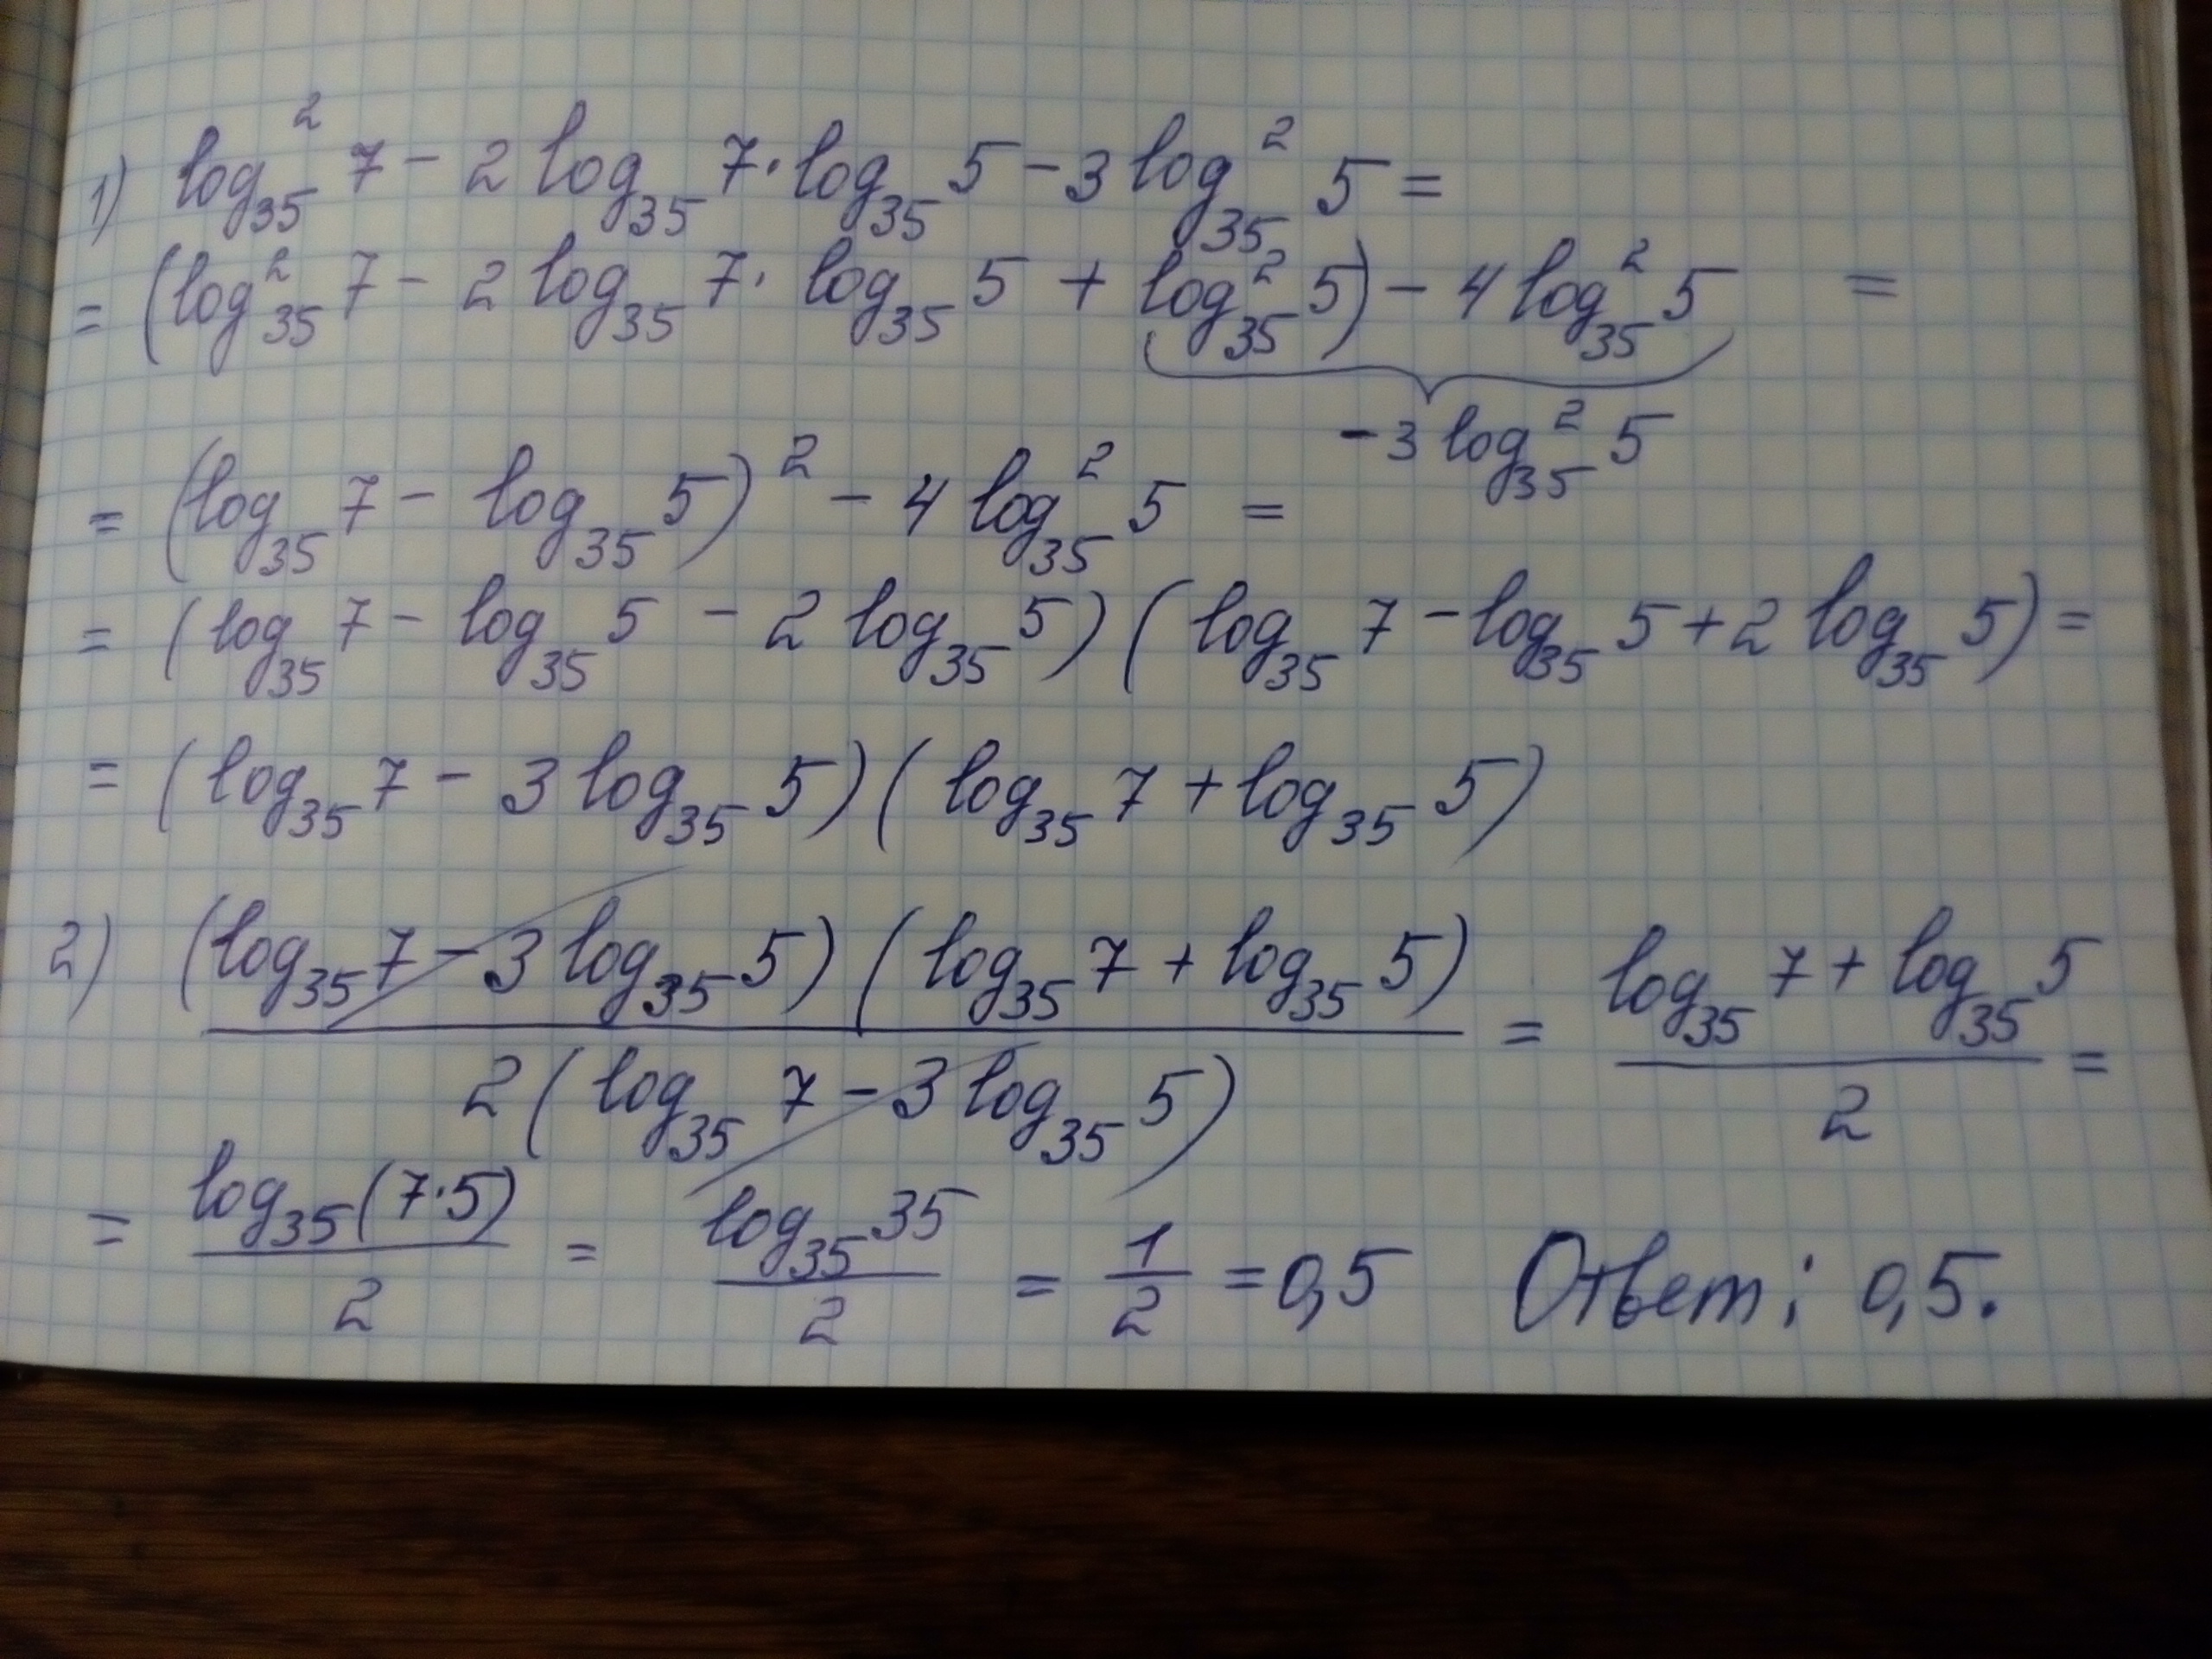 1) log₃₅² 7 - 2 log₃₅ 7 · log₃₅ 5 - 3 log₃₅² 5 =
= (log₃₅² 7 - 2 log₃₅ 7 · log₃₅ 5 + log₃₅² 5) - 4 log₃₅² 5 =
- 3 log₃₅² 5
= (log₃₅ 7 - log₃₅ 5)² - 4 log₃₅² 5 =
= (log₃₅ 7 - log₃₅ 5 - 2 log₃₅ 5) (log₃₅ 7 - log₃₅ 5 + 2 log₃₅ 5) =
= (log₃₅ 7 - 3 log₃₅ 5) (log₃₅ 7 + log₃₅ 5)
2) (log₃₅ 7 - 3 log₃₅ 5) (log₃₅ 7 + log₃₅ 5) / 2 (log₃₅ 7 - 3 log₃₅ 5) = log₃₅ 7 + log₃₅ 5 / 2 =
= log₃₅ (7·5) / 2 = log₃₅ 35 / 2 = 1/2 = 0,5 Ответ: 0,5.